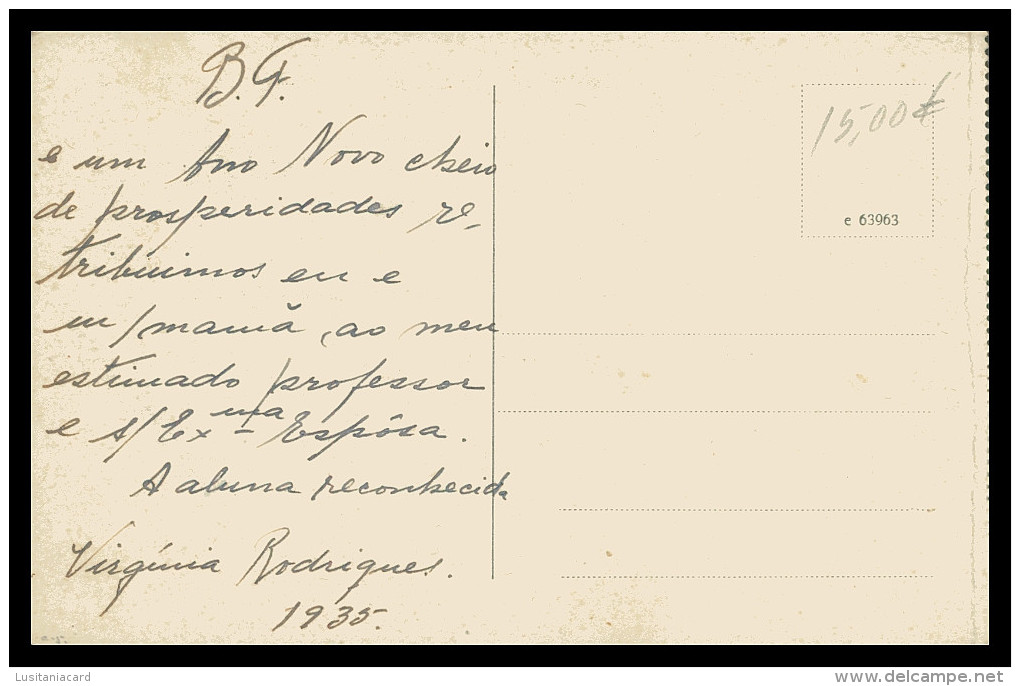 B. F.
e um Ano Novo cheio
de prosperidades re-
tribúimos eu e
m/mamã, ao meu
estimado professor
e s/Ex ma Espôsa.
A aluna reconhecida
Virgínia Rodrigues.
1935.
15,00€
e 63963
Lusitaniacard
www.delcampe.net